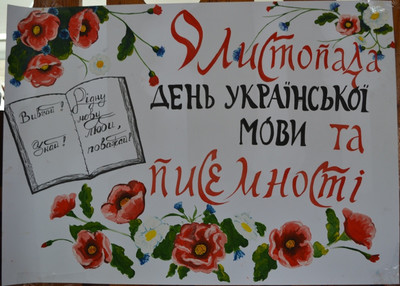 9 листопада
ДЕНЬ УКРАЇНСЬКОЇ
МОВИ та
писемності
Вивчай!
Знай!
Рідну
мову
люби,
поважай!